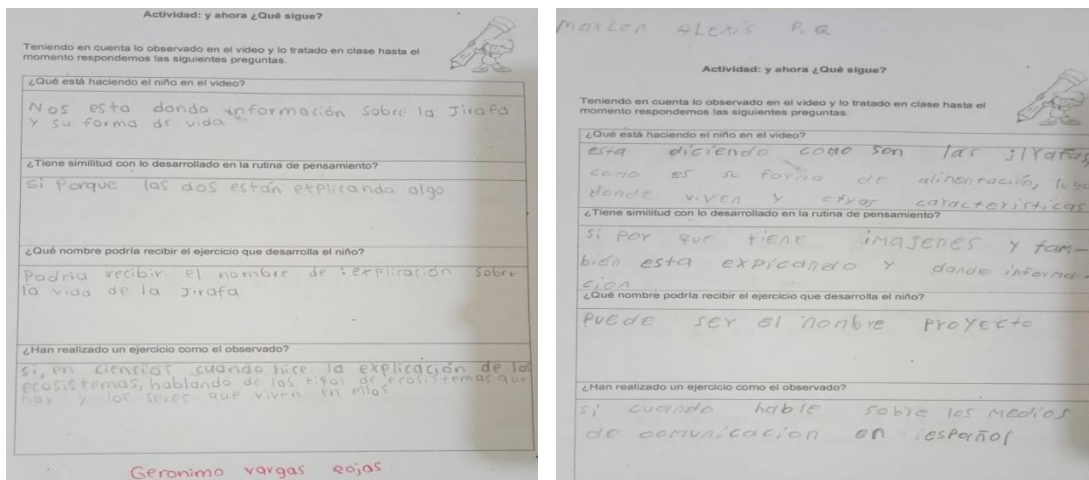 Actividad: y ahora ¿Qué sigue?
Teniendo en cuenta lo observado en el video y lo tratado en clase hasta el
momento respondemos las siguientes preguntas.
¿Qué está haciendo el niño en el video?
Nos esta dando información sobre la Jirafa
y su forma de vida
¿Tiene similitud con lo desarrollado en la rutina de pensamiento?
si Porque las dos están explicando algo
¿Qué nombre podría recibir el ejercicio que desarrolla el niño?
Podría recibir el nombre de: explicación sobre
la vida de la Jirafa
¿Han realizado un ejercicio como el observado?
si, en ciencias cuando hice la explicación de los
ecosistemas, hablando de los tipos de ecosistemas que
hay y los seres que viven en ellos
Geronimo vargas Rojas
Marlon ALexis P. Q
Actividad: y ahora ¿Qué sigue?
Teniendo en cuenta lo observado en el video y lo tratado en clase hasta el
momento respondemos las siguientes preguntas.
¿Qué está haciendo el niño en el video?
esta diciendo como son las jirafas
como es su forma de alimentación, luga
donde viven y otras características
¿Tiene similitud con lo desarrollado en la rutina de pensamiento?
si por que tiene imajenes y tam-
bién esta expicando y dando informa-
cion
¿Qué nombre podría recibir el ejercicio que desarrolla el niño?
puede ser el nonbre proyecto
¿Han realizado un ejercicio como el observado?
si cuando hable sobre los medios
de comunicacion en español